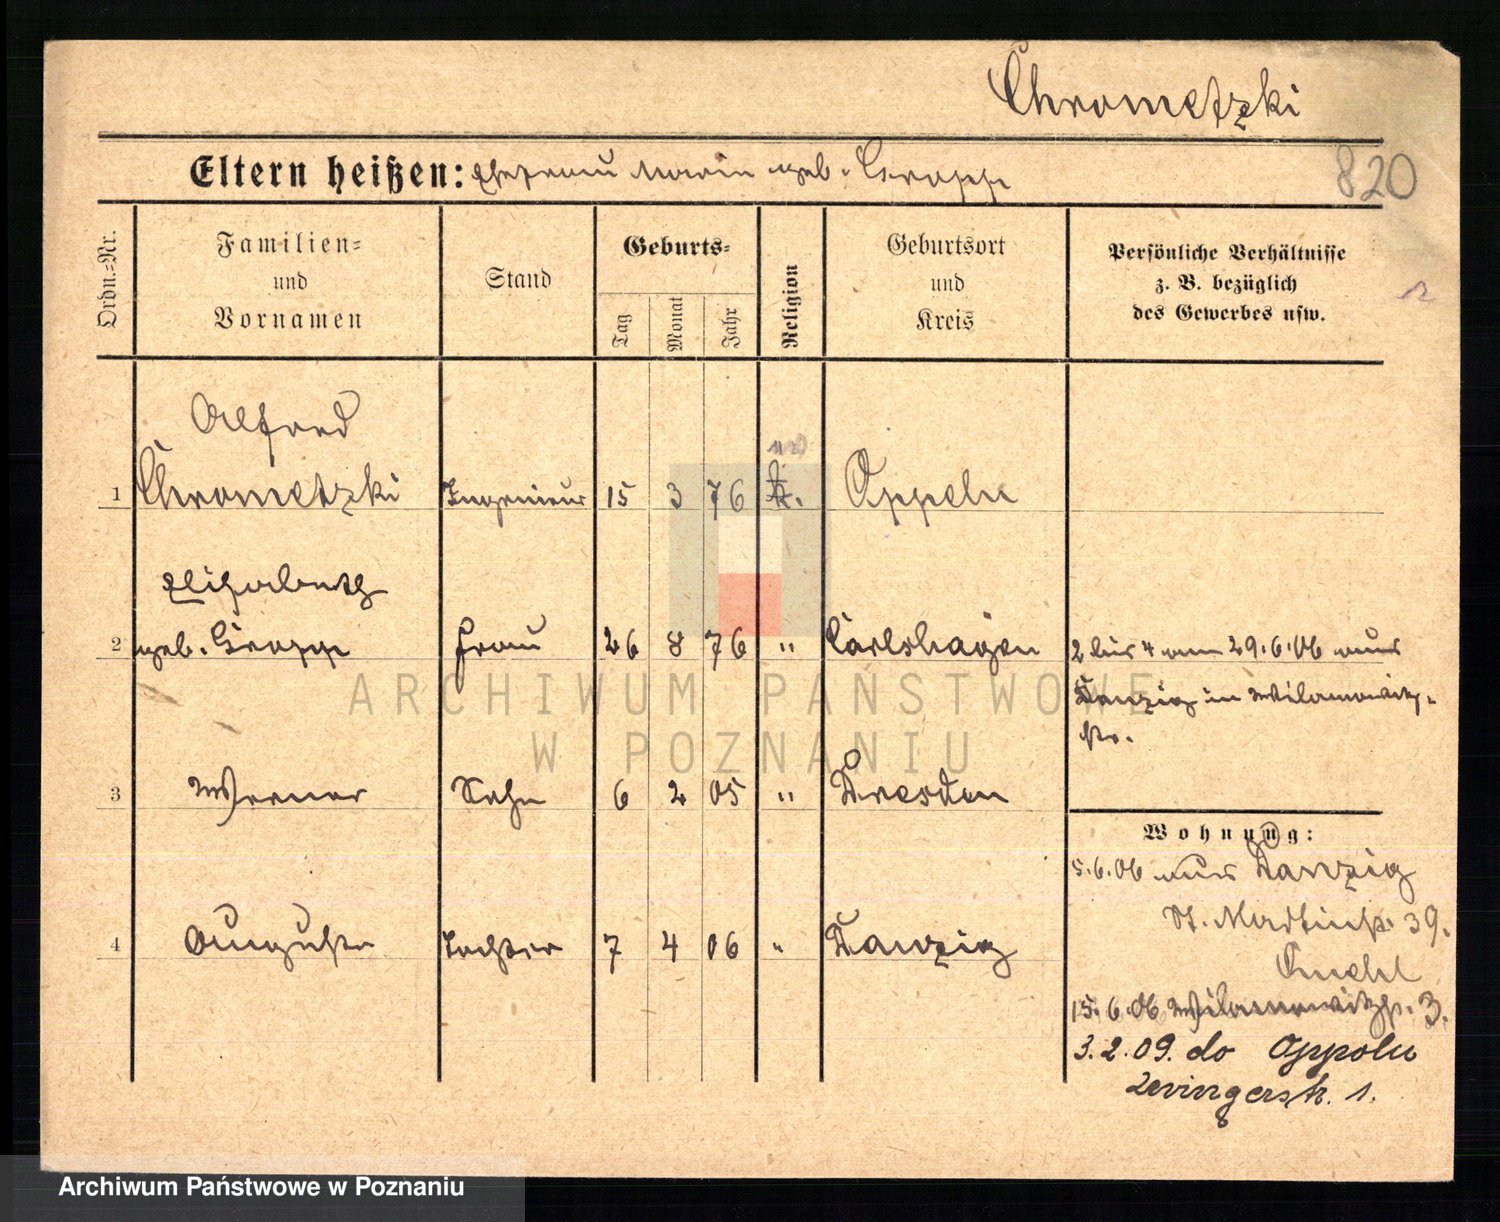 Chrometzki
Eltern heißen: Ehefrau Marie geb. Groppe
820
Ordn.=Nr.
Familien=
und
Vornamen
Stand
Geburts=
Tag
Monat
Jahr
Religion
Geburtsort
und
Kreis
Persönliche Verhältnisse
z. B. bezüglich
des Gewerbes usw.
Alfred
1 Chrometzki Ingenieur 15 3 76 Oppeln
Elisabeth
2 geb. Groppe Frau 26 8 76 " Carlshagen 2 bis 4 am 29.6.06 aus
Danzig in Wilamowitz-
str.
3 Werner Sohn 6 2 05 " Dresden
Wohnung:
5.6.06 aus Danzig
St. Martinstr. 39.
4 Auguste Tochter 7 4 06 " Danzig
15.6.06 Wilamowitzstr. 3.
3.2.09. do Oppeln
Zevingerstr. 1.
ARCHIWUM PAŃSTWOWE
W POZNANIU
Archiwum Państwowe w Poznaniu